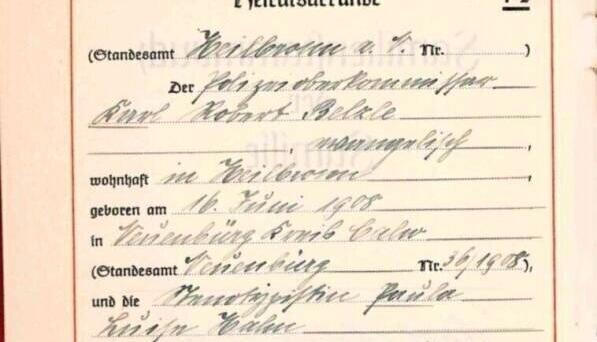 Heiratsurkunde
(Standesamt Heilbronn a. N. Nr. )
Der Polizeioberkommissar
Karl Robert Belzle
, evangelisch,
wohnhaft in Heilbronn,
geboren am 16. Juni 1908
in Neuenbürg Kreis Calw
(Standesamt Neuenbürg Nr. 36/1908),
und die Stenotypistin Paula
Luise Halm